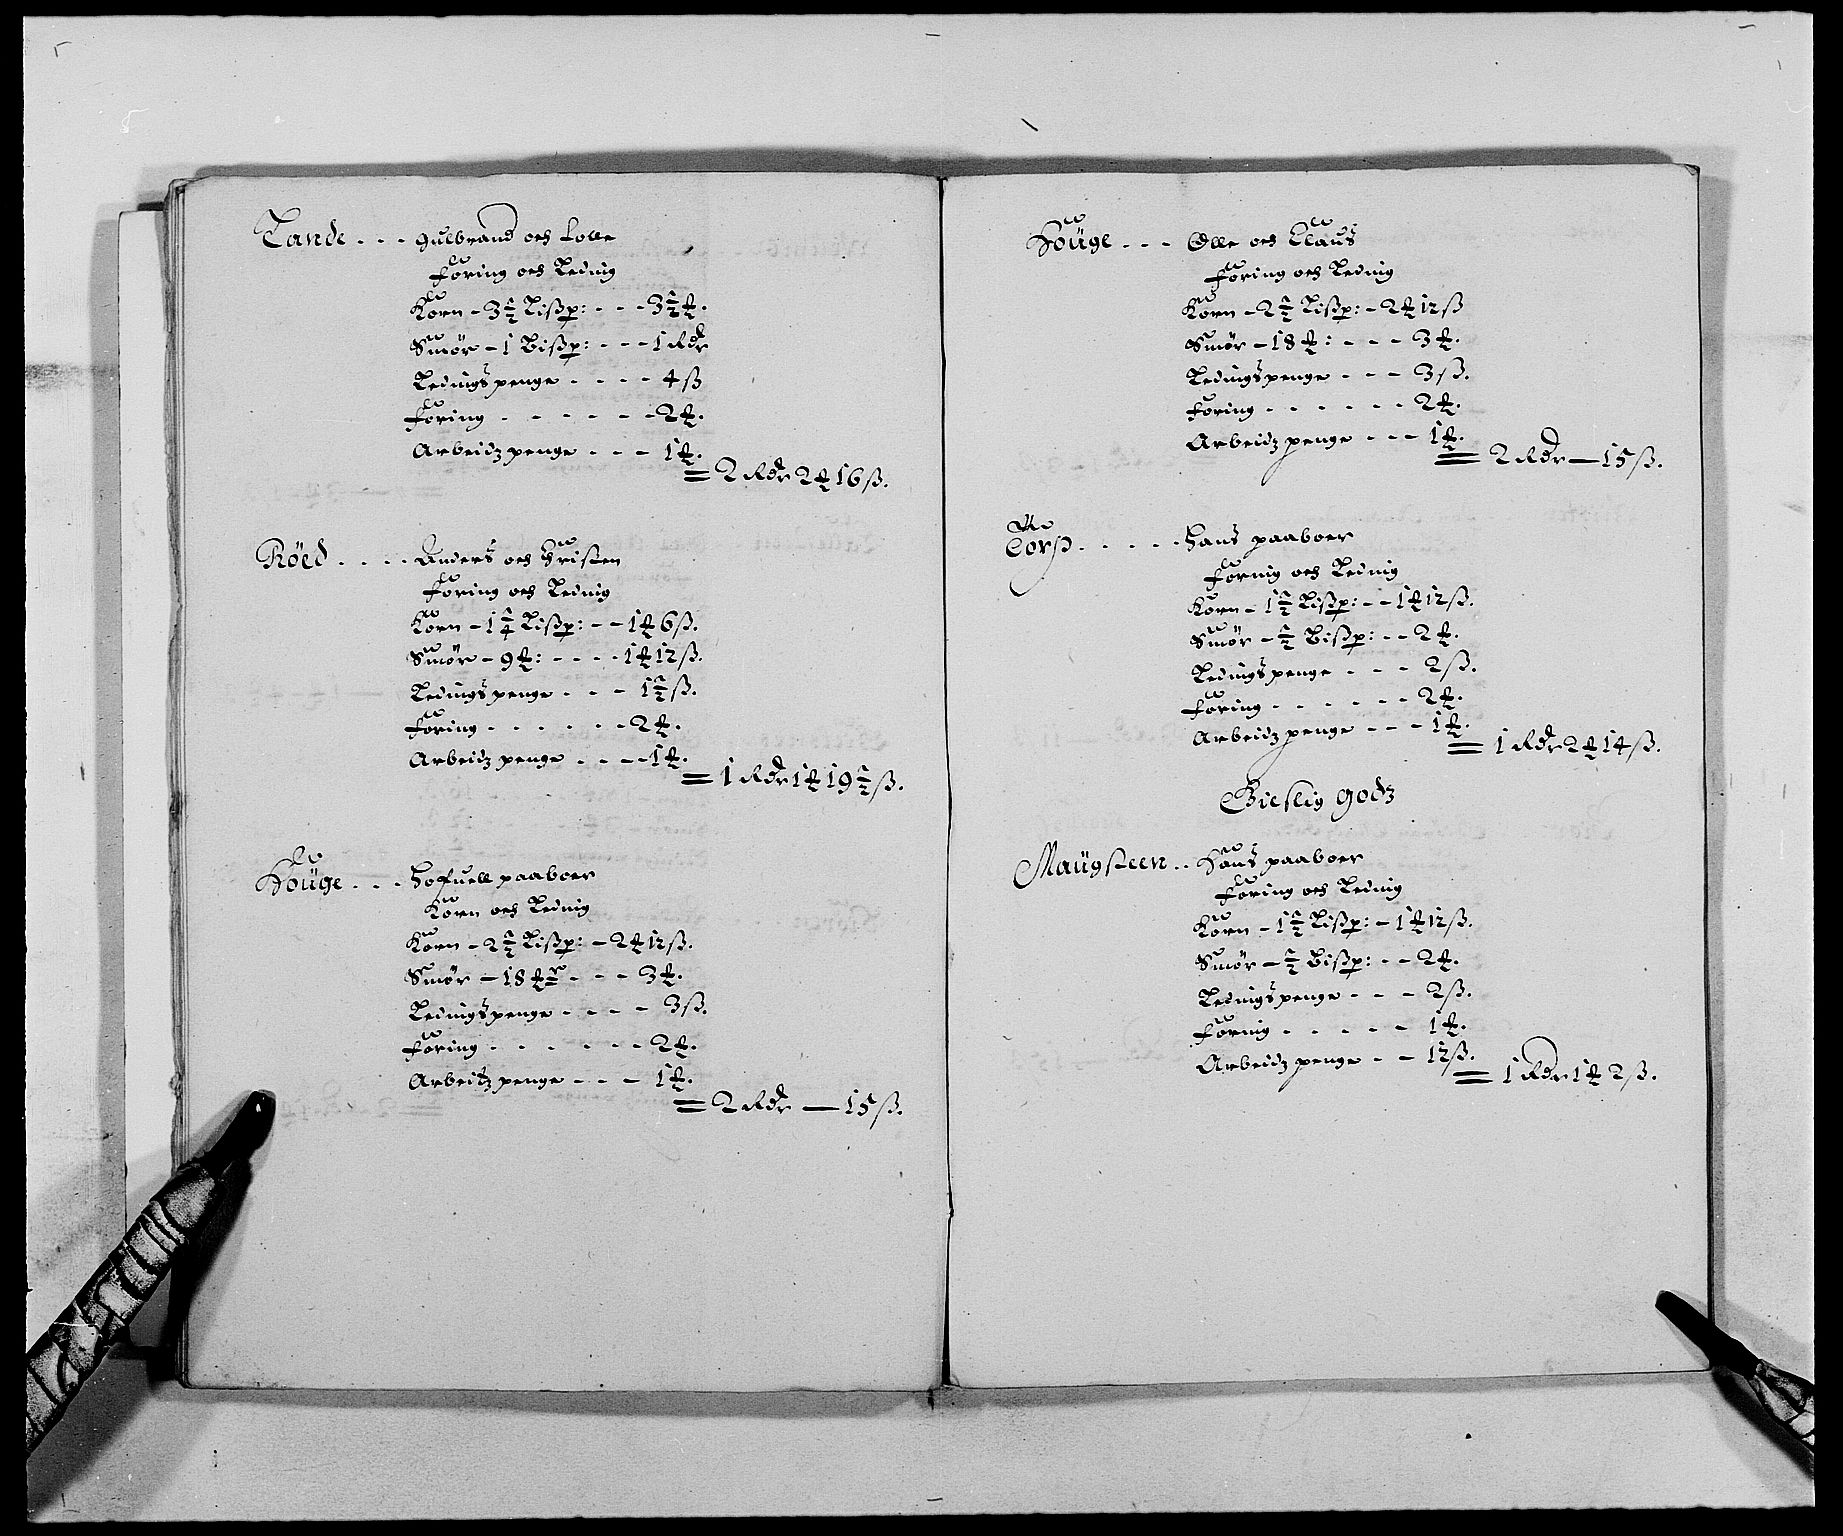 Tande - - - Gulbrand och Lolle
Foring och Leding
Korn - 3½ Lißp: - - - 3½ ℔.
Smør - 1 Bißp: - - - 1 Rdr
Ledingspenge - - - - 4 ß
Foring - - - - - - 2 ℔.
Arbeidzpenge - - - 1 ℔.
= 2 Rdr 2 ℔ 16 ß.
Röed - - - - Anders och Christen
Foring och Leding
Korn - 1¼ Lißp: - - 1 ℔ 6 ß.
Smør - 9 ℔: - - - - 1 ℔ 12 ß.
Ledingspenge - - - 1½ ß.
Foring - - - - - - 2 ℔.
Arbeidzpenge - - - - 1 ℔.
= 1 Rdr 1 ℔ 19½ ß.
Houge - - - Hofuell paaboer
Korn och Leding
Korn - 2½ Lißp: - 2 ℔ 12 ß.
Smør - 18 ℔r - - - 3 ℔.
Ledingspenge - - - - 3 ß.
Foring - - - - - - 2 ℔.
Arbeitzpenge - - - 1 ℔.
= 2 Rdr — 15 ß.
Houge - - - Olle och Claus
Foring och Leding
Korn - 2½ Lißp: - 2 ℔ 12 ß
Smør - 18 ℔: - - - 3 ℔.
Ledingspenge - - - 3 ß.
Foring - - - - - - 2 ℔.
Arbeidzpenge - - - 1 ℔.
= 2 Rdr — 15 ß.
Torp - - - - - Hans paaboer
Fornig och Leding
Korn - 1½ Lißp: - - 1 ℔ 12 ß.
Smør - ½ Bißp: - - 2 ℔.
Ledingspenge - - - 2 ß.
Foring - - - - - - 2 ℔.
Arbeidzpenge - - - 1 ℔.
= 1 Rdr 2 ℔ 14 ß.
Gieslig godz
Maugsteen - - Hans paaboer
Foring och Leding
Korn - 1½ Lißp: - 1 ℔ 12 ß.
Smør - ½ Bißp: - - 2 ℔.
Ledingspenge - - - 2 ß.
Fornig - - - - - 1 ℔.
Arbeidzpenge - - 12 ß.
= 1 Rdr 1 ℔ 2 ß.